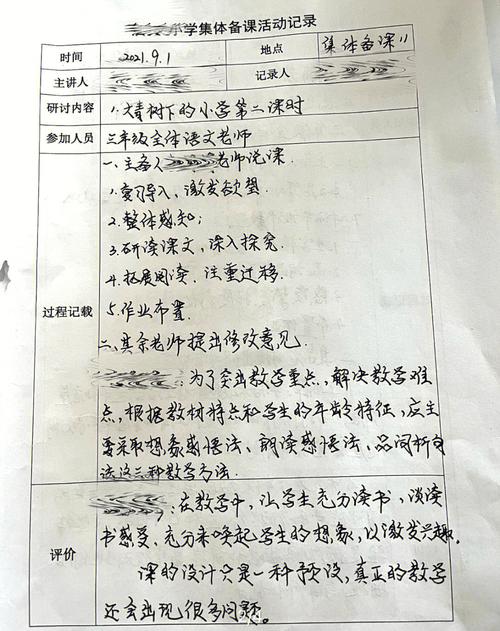 小学集体备课活动记录
时间 2021.9.1 地点 集体备课
主讲人 记录人
研讨内容 1.大青树下的小学第二课时
参加人员 三年级全体语文老师
过程记载
一、主备人 老师说课.
1.复习导入、激发欲望.
2.整体感知;
3.研读课文,深入探究.
4.拓展阅读、注重迁移.
5.作业布置.
二、其余老师提出修改意见.
:为了突出教学重点,解决教学难
点,根据教材特点和学生的年龄特征,应主
要采取想象感悟法、朗读感悟法、品词析句
法这三种教学方法.
评价
:在教学中,让学生充分读书,谈读
书感受.充分来唤起学生的想象,以激发兴趣.
课的设计只是一种预设,真正的教学
还会出现很多问题.